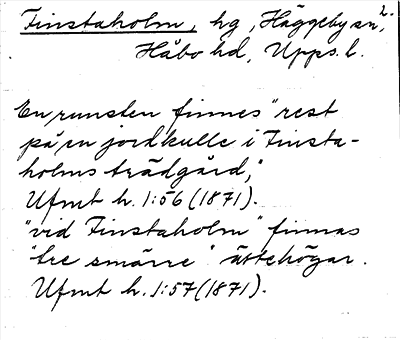 2.
Finstaholm, hg, Häggeby sn,
Håbo hd, Upps. l.
En runsten finnes "rest
på en jordkulle i Finsta-
holms trädgård,"
Ufmt h. 1:56 (1871).
"vid Finstaholm" finnas
"tre smärre" ättehögar.
Ufmt h. 1:57 (1871).